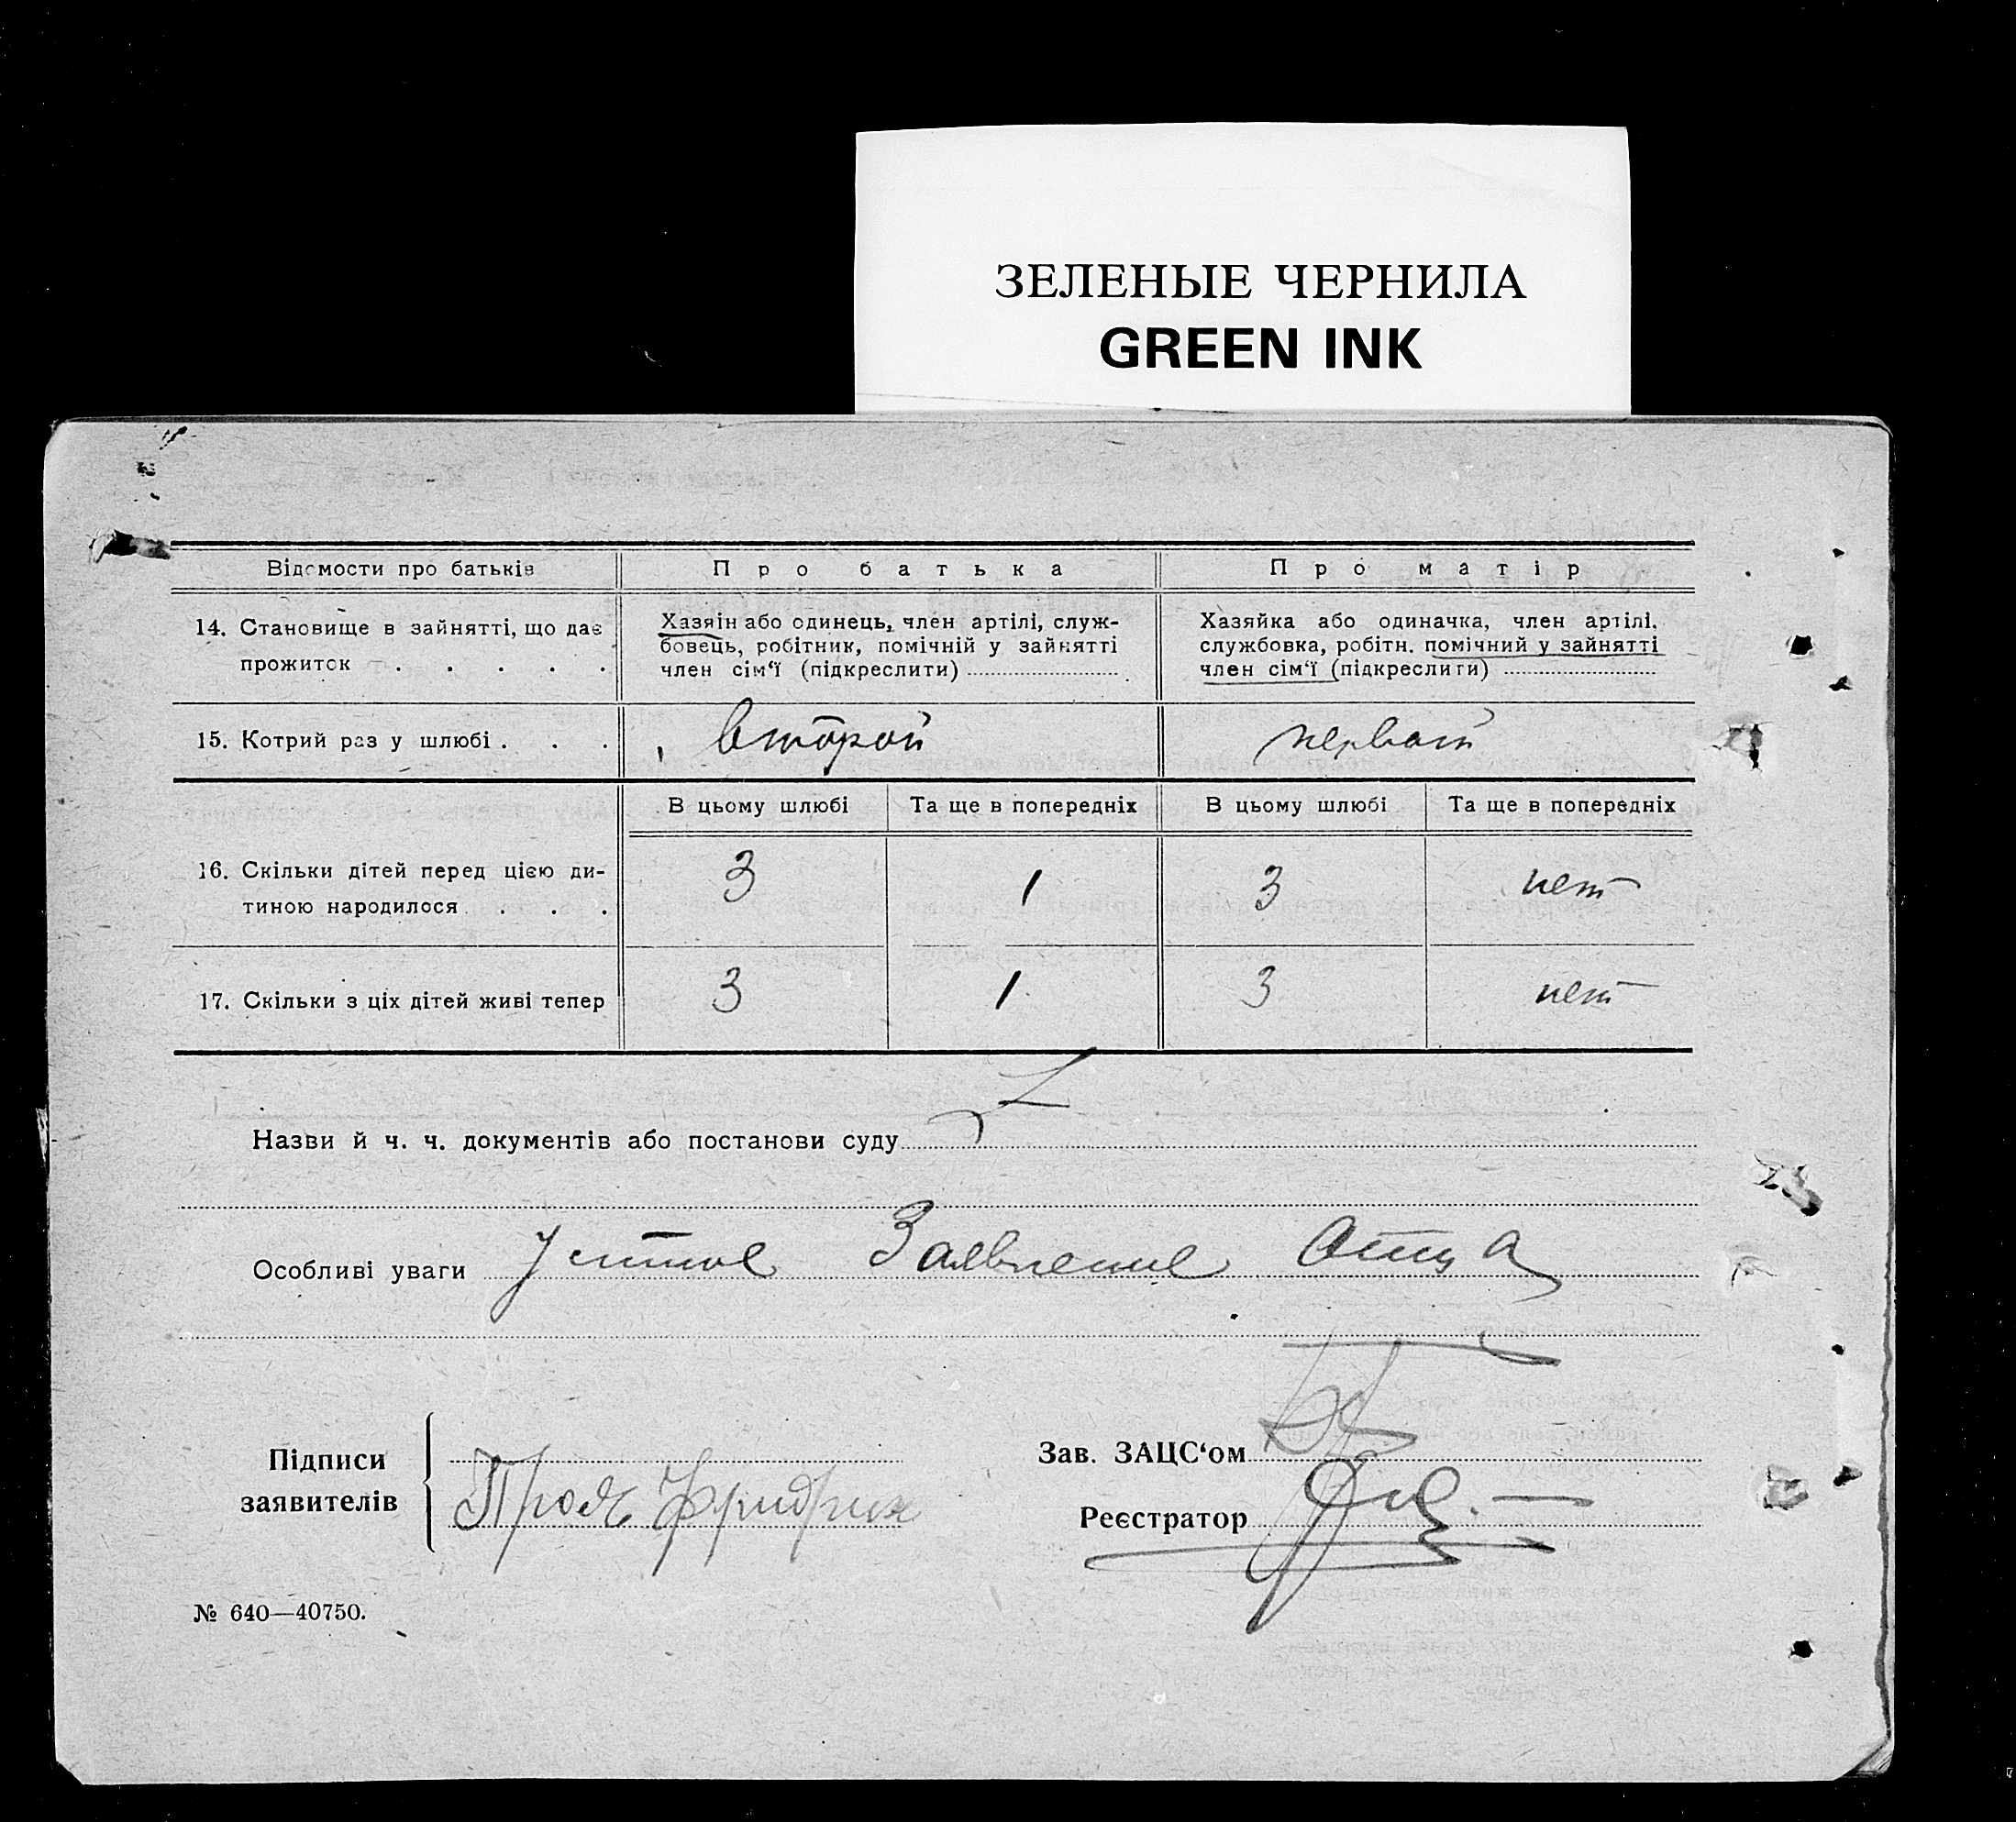 ЗЕЛЕНЫЕ ЧЕРНИЛА
GREEN INK
Відомости про батьків Про батька Про матір
14. Становище в зайнятті, що дає прожиток . . . . .
Хазяін або одинець, член артілі, служ-
бовець, робітник, помічній у зайнятті
член сім‘ї (підкреслити)
Хазяйка або одиначка, член артілі,
службовка, робітн. помічний у зайнятті
член сім‘ї (підкреслити)
15. Котрий раз у шлюбі . . . второй первый
В цьому шлюбі Та ще в попередніх В цьому шлюбі Та ще в попередніх
16. Скільки дітей перед цією ди-
тиною народилося . . . 3 1 3 нет
17. Скільки з ціх дітей живі тепер 3 1 3 нет
Назви й ч. ч. документів або постанови суду
Особливі уваги Устное Заявление Отца
Підписи
заявителів
Фридрих
Зав. ЗАЦС‘ом
Реєстратор
№ 640—40750.